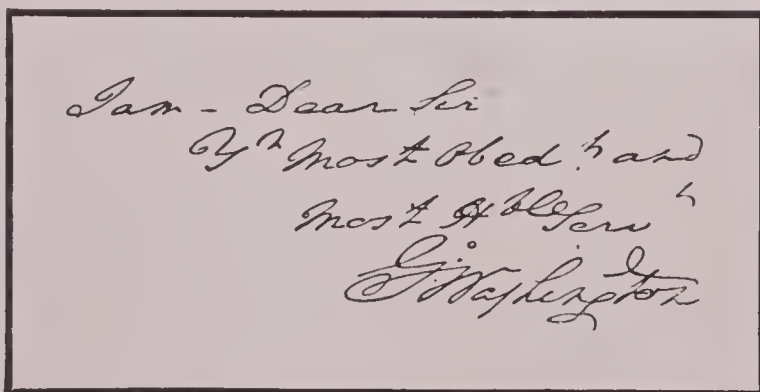 I am – Dear Sir
Yr Most Obedt and
Most Hble Servt
Go: Washington